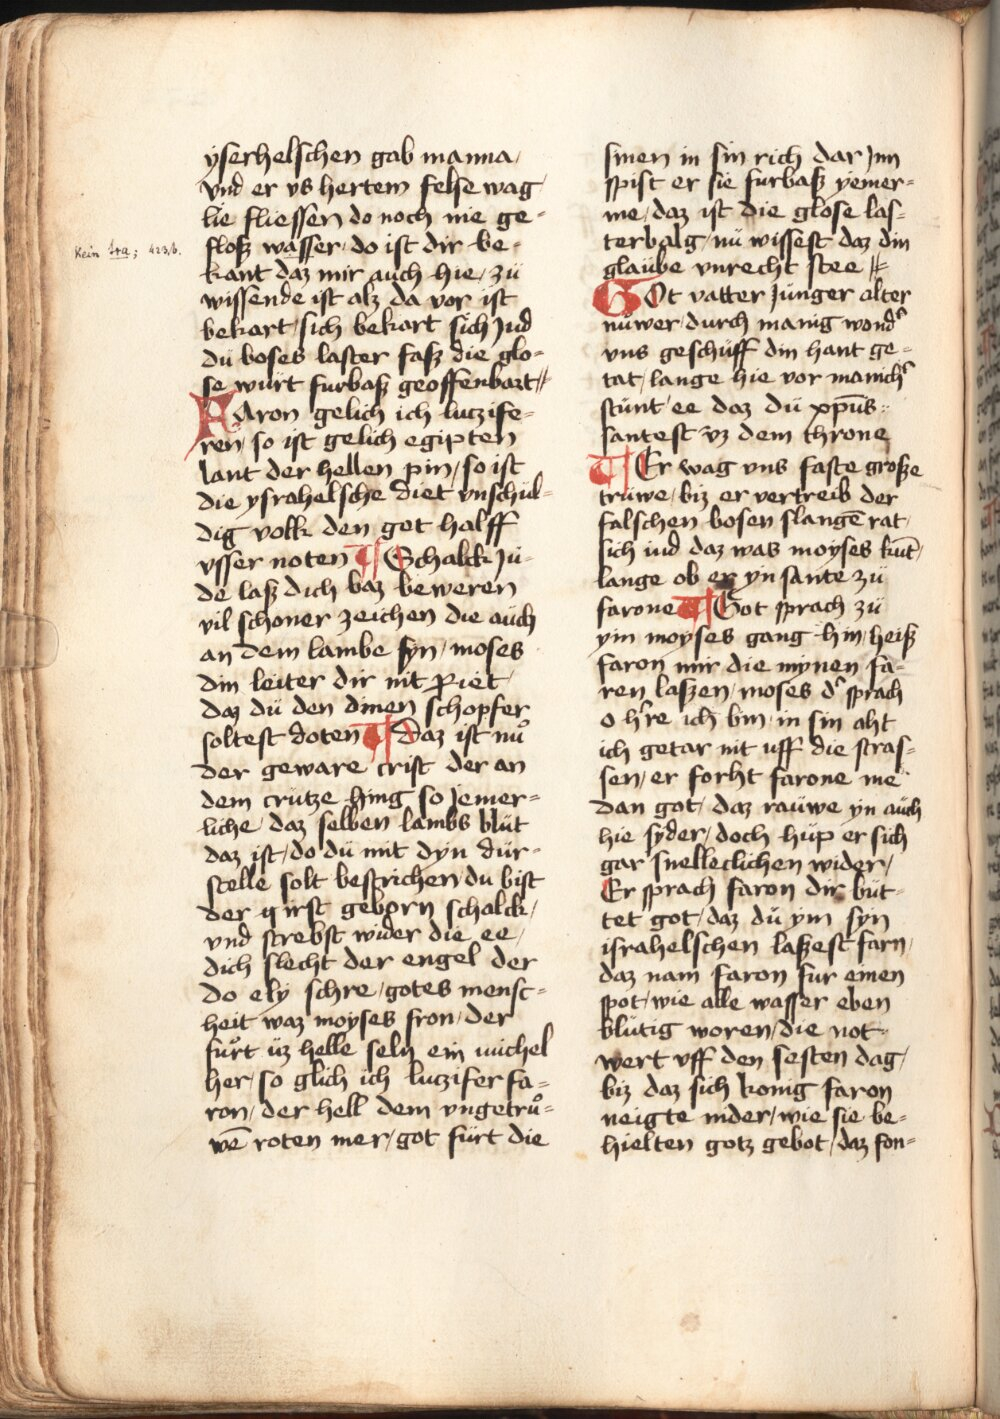 yserhelschen gab manna /
vnd er vs hertem felse wag /
lie fliessen do noch nie ge-
Kein 4ta; 423/b.
floß wasser / do ist dir be-
kant daz mir auch hie / zü
wissende ist alz da vor ist
bekart / sich bekart sich Jud
dü boses laster faß die glo-
se würt furbaß geoffenbart //
FAron gelich ich luczife-
ren / so ist gelich egipten
lant der hellen pin / so ist
die ysrahelsche diet vnschül-
dig volk den got halff
vsser noten ¶ Schalck Jü-
de laß dich baz beweren
vil schoner zeichen die aüch
an dem lambe syn / moses
din leiter dir nit priet /
daz dü den dinen schopfer
soltest doten ¶ Daz ist nuͦ
der geware crist der an
dem crütze hing so Jemer-
liche / daz selben lambs blüt
daz ist / do dü mit dyn dür-
stelle solt bestrichen / du bist
der girst geborn schalck /
vnd strebst wider die ee /
dich slecht der engel der
do ely schre / gotes mensc-
heit waz moyses fron / der
fuͦrt üz helle seln ein michel
her / so glich ich luczifer fa-
ron / der hell dem vngetruͦ-
wē roten mer / got fürt die
sinen in sin rich dar Jnn
spist er sie furbaß yemer-
me / daz ist die glose las-
terbalg / nü wissest daz din
glaübe vnrecht stee //
GOt vatter Jünger alter
nüwer / durch manig wond᾽
vns geschüff din hant ge-
tat / lange hie vor manich᾽
stünt / ee daz dü xpūs
santest vz dem throne
¶ Er wag vns faste große
trüwe / biz er vertreib der
falschen bosen slangē rat /
sich iud daz was moyses kūt /
lange ob er yn sante zü
farone ¶ Got sprach zü
ym moyses gang hin / heiß
faron mir die mynen fa-
ren laßen / moses d᾽ sprach
o h᾽re ich bin in sin aht
ich getar nit uff die stras-
sen / er forht farone me
dan got / daz raüwe yn aüch
hie syder / doch hüp er sich
gar snelleclichen wider /
Er sprach faron dir büt-
tet got / daz dü ym syn
israhelschen laßest farn /
daz nam faron fur einen
spot / wie alle wasser eben
blütig woren / die not
wert vff den sesten dag /
biz daz sich konig faron
neigte nider / wie sie be-
hielten gotz gebot / daz fon-